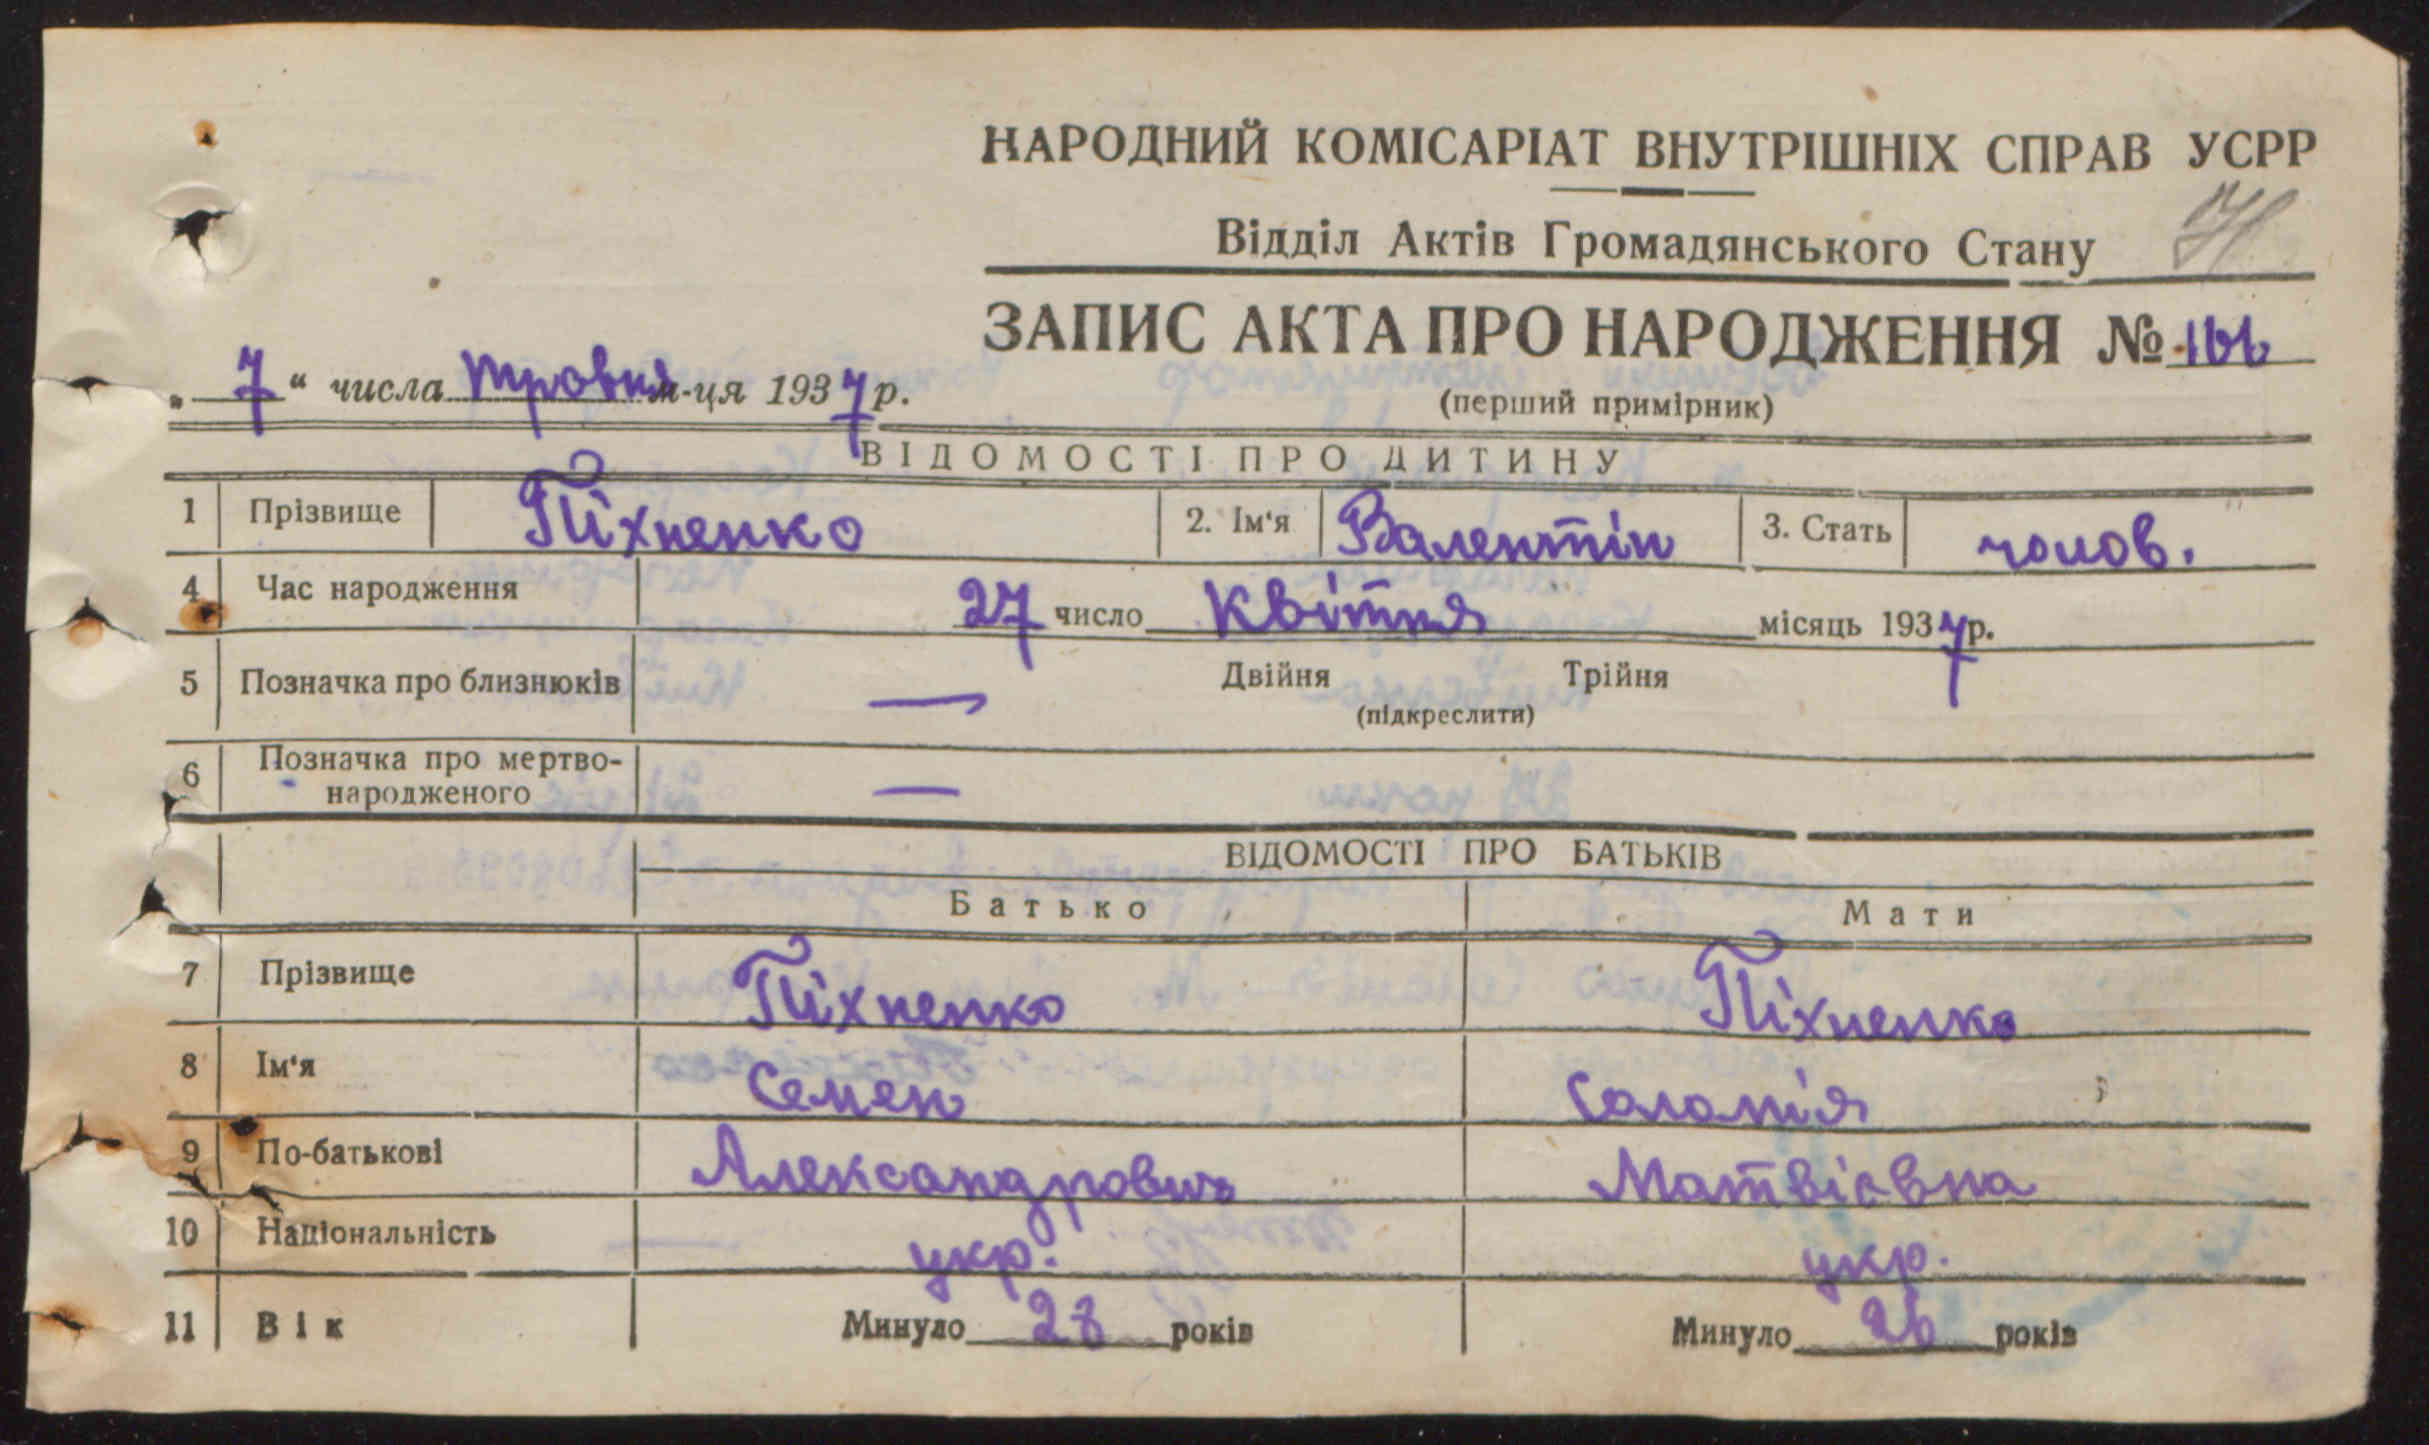 НАРОДНИЙ КОМІСАРІАТ ВНУТРІШНІХ СПРАВ УСРР
Відділ Актів Громадянського Стану
ЗАПИС АКТА ПРО НАРОДЖЕННЯ №
„ 7 “ числа травня м-ця 1937 р.
(перший примірник)
ВІДОМОСТІ ПРО ДИТИНУ
1 Прізвище Тіхненко 2. Ім‘я Валентін 3. Стать чолов.
4 Час народження 27 число Квітня місяць 1937 р.
5 Позначка про близнюків — Двійня Трійня
(підкреслити)
6 Позначка про мертво-
народженого —
ВІДОМОСТІ ПРО БАТЬКІВ
Батько Мати
7 Прізвище Тіхненко Тіхненко
8 Ім‘я Семен Соломія
9 По-батькові Александрович Матвієвна
10 Національність укр. укр.
11 Вік Минуло 28 років Минуло 26 років